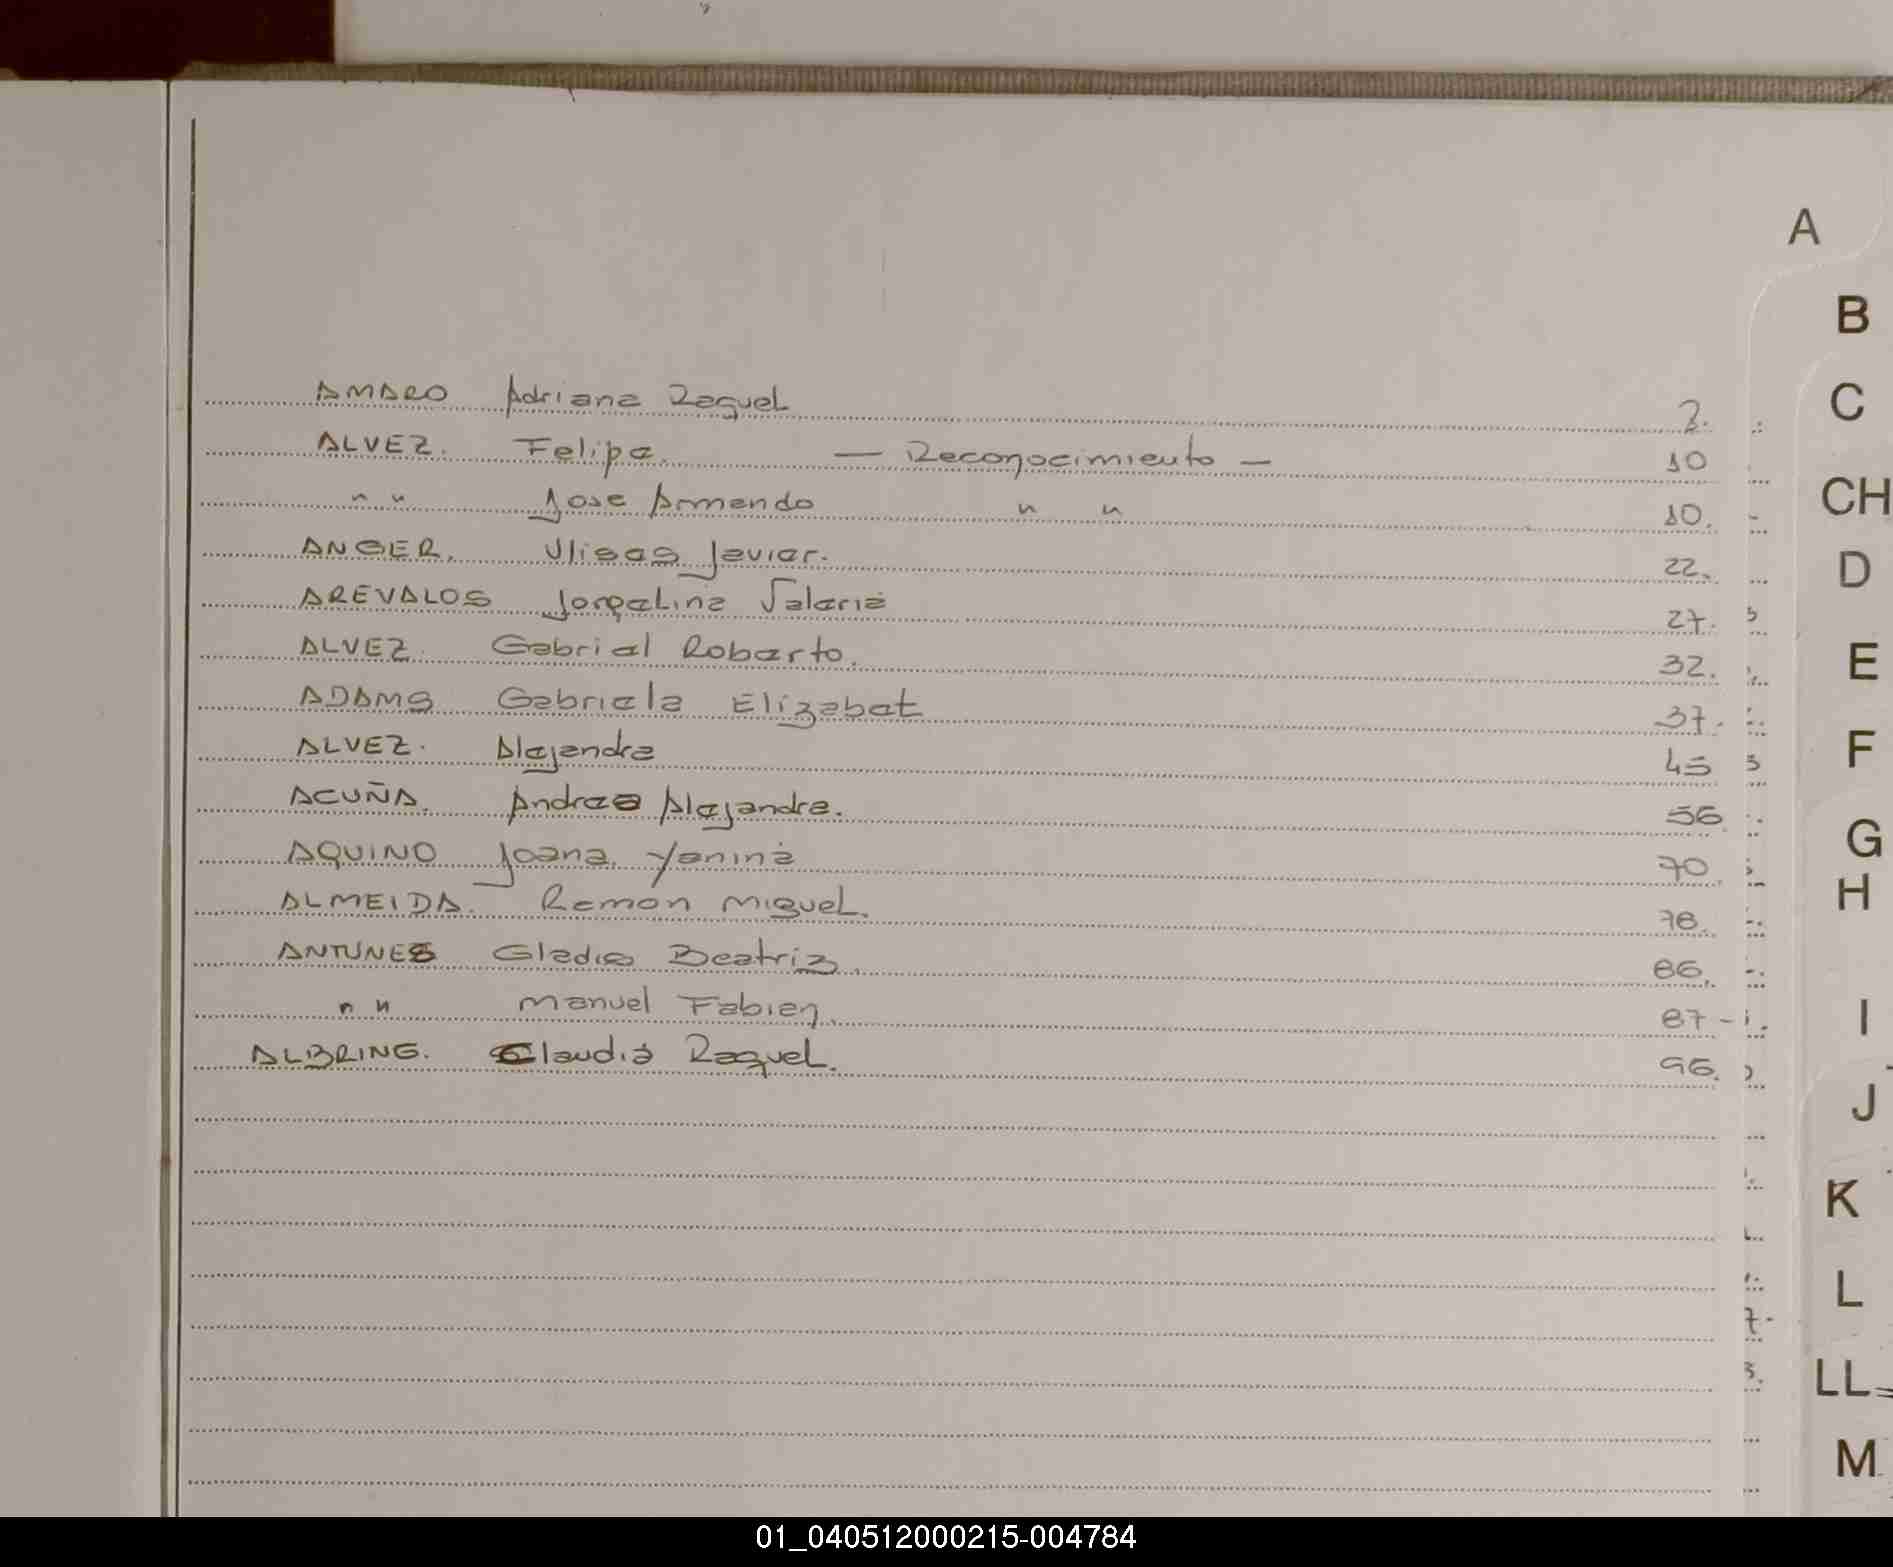 A
B
C
CH
D
E
F
G
H
I
J
K
L
LL
M
AMARO Adriana Raquel 2.
ALVEZ. Felipe. — Reconocimiento — 10
" " Jose Armando " " 10.
ANGER. Ulises Javier. 22.
AREVALOS Jorgelina Valeria 27.
ALVEZ. Gabriel Roberto. 32.
ADAMS Gabriela Elizabet 37.
ALVEZ. Alejandra 45
ACUÑA. Andrea Alejandra. 56
AQUINO Joana Yanina 70.
ALMEIDA. Ramon Miguel. 78.
ANTUNES Gladis Beatriz. 86.
" " Manuel Fabien. 87-
ALBRING. Claudia Raquel. 96.
01_040512000215-004784